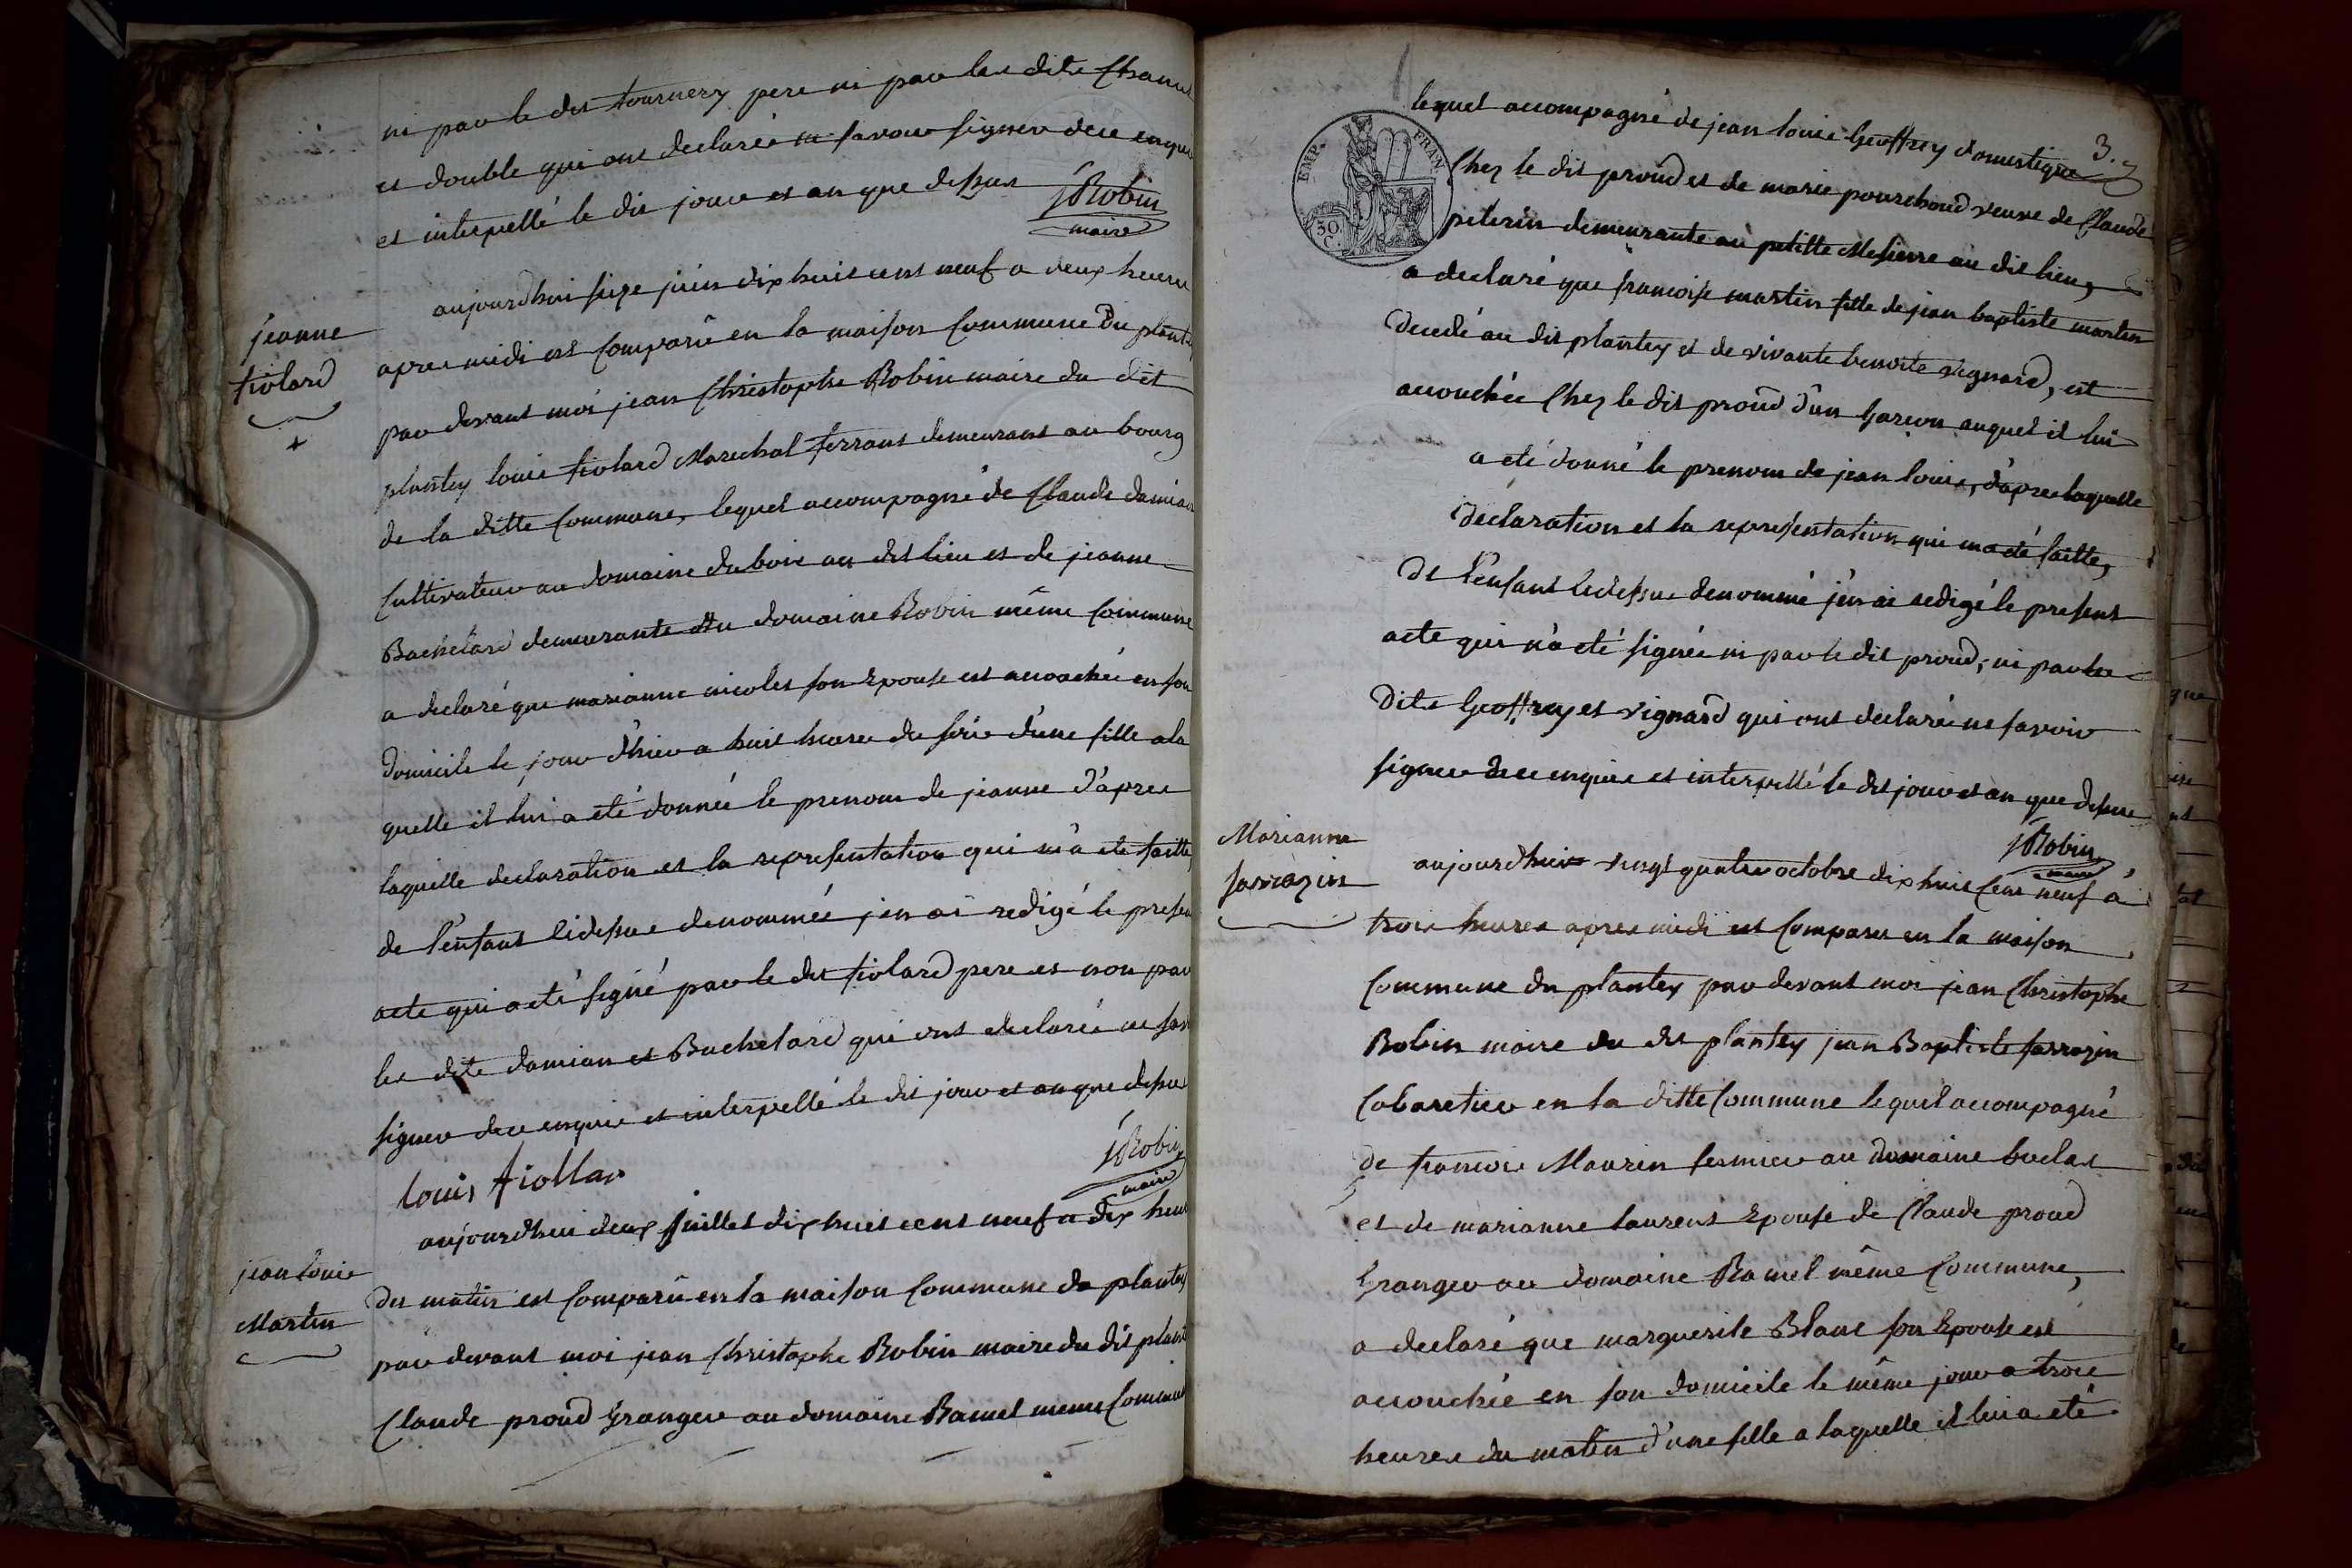 ni par le dit tournery pere ni par les dits
et double qui ont declarés ne savoir signer de ce enquis
et interpellé le dit jour et an que dessus
JRobin
maire
jeanne
fiolard
aujourdhui seize juin dix huit cent neuf a deux heures
apres midi est comparû en la maison commune du plantey
par devant moi jean Christophe Robin maire du dit
plantey louis fiolard Marechal ferrant demeurant au bourg
de la ditte commune, lequel accompagné de Claude damian
cultivateur au domaine du bois au dit lieu et de jeanne
Bachelard demeurante au domaine Robin même commune
a declaré que marianne nicolet son Epouse est accouchée en son
domicile le jour d'hier a huit heures du soir d'une fille a la
quelle il lui a eté donnée le prenom de jeanne d'apres
laquelle declaration et la representation qui m'a eté faitte
de l'enfant cidessus denommée j'en ai redigé le present
acte qui a eté signé par le dit fiolard pere et non par
les dits damian et Bachelard qui ont declarés ne savoir
signer de ce enquis et interpellé le dit jour et an que dessus
louis fiollar
JRobin
maire
jean louis
Martin
aujourdhui deux juillet dix huit cent neuf a dix heures
du matin est comparû en la maison commune du plantey
par devant moi jean Christophe Robin maire du dit plantey
Claude proud Granger au domaine Ramel meme commune
3.
EMP. FRAN.
50 C.
lequel accompagné de jean louis Geoffrey domestique
Chez le dit proud et de marie pourchoud veuve de Claude
peterin demeurante au petitte Mesierre au dit lieu,
a declaré que francoise martin fille de jean baptiste martin
decedé au dit plantey et de vivante benoite vignard, est
accouchée Chez le dit proud d'un Garcon auquel il lui
a eté donné le prenom de jean louis, d'apres laquelle
declaration et la representation qui ma eté faitte,
de l'enfant cidessus denommé j'en ai redigé le present
acte qui n'a eté signé ni par le dit proud, ni par les
dits Geoffrey et vignard qui ont declarés ne savoir
signer de ce enquis et interpellé le dit jour et an que dessus
JRobin
maire
Marianne
sarrazin
aujourdhui vingt quatre octobre dix huit cent neuf à
trois heures apres midi est comparu en la maison
commune du plantey par devant moi jean Christophe
Robin maire du dit plantey jean Baptiste sarrazin
Cabaretier en la ditte commune lequel accompagné
de francois Maurin fermier au domaine
et de marianne laurent Epouse de Claude proud
Granger au domaine Ramel même commune,
a declaré que marguerite Blanc son Epouse est
accouchée en son domicile le même jour a trois
heures du matin d'une fille a laquelle il lui a eté